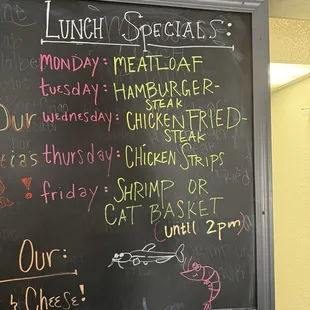 LUNCH SPECIALS:
MONDAY: MEATLOAF
tuesday: HAMBURGER-
STEAK
wednesday: CHICKEN FRIED-
STEAK
thursday: CHICKEN STRIPS
friday: SHRIMP OR
CAT BASKET
(until 2pm)
Our
tias
!
Our:
& Cheese!